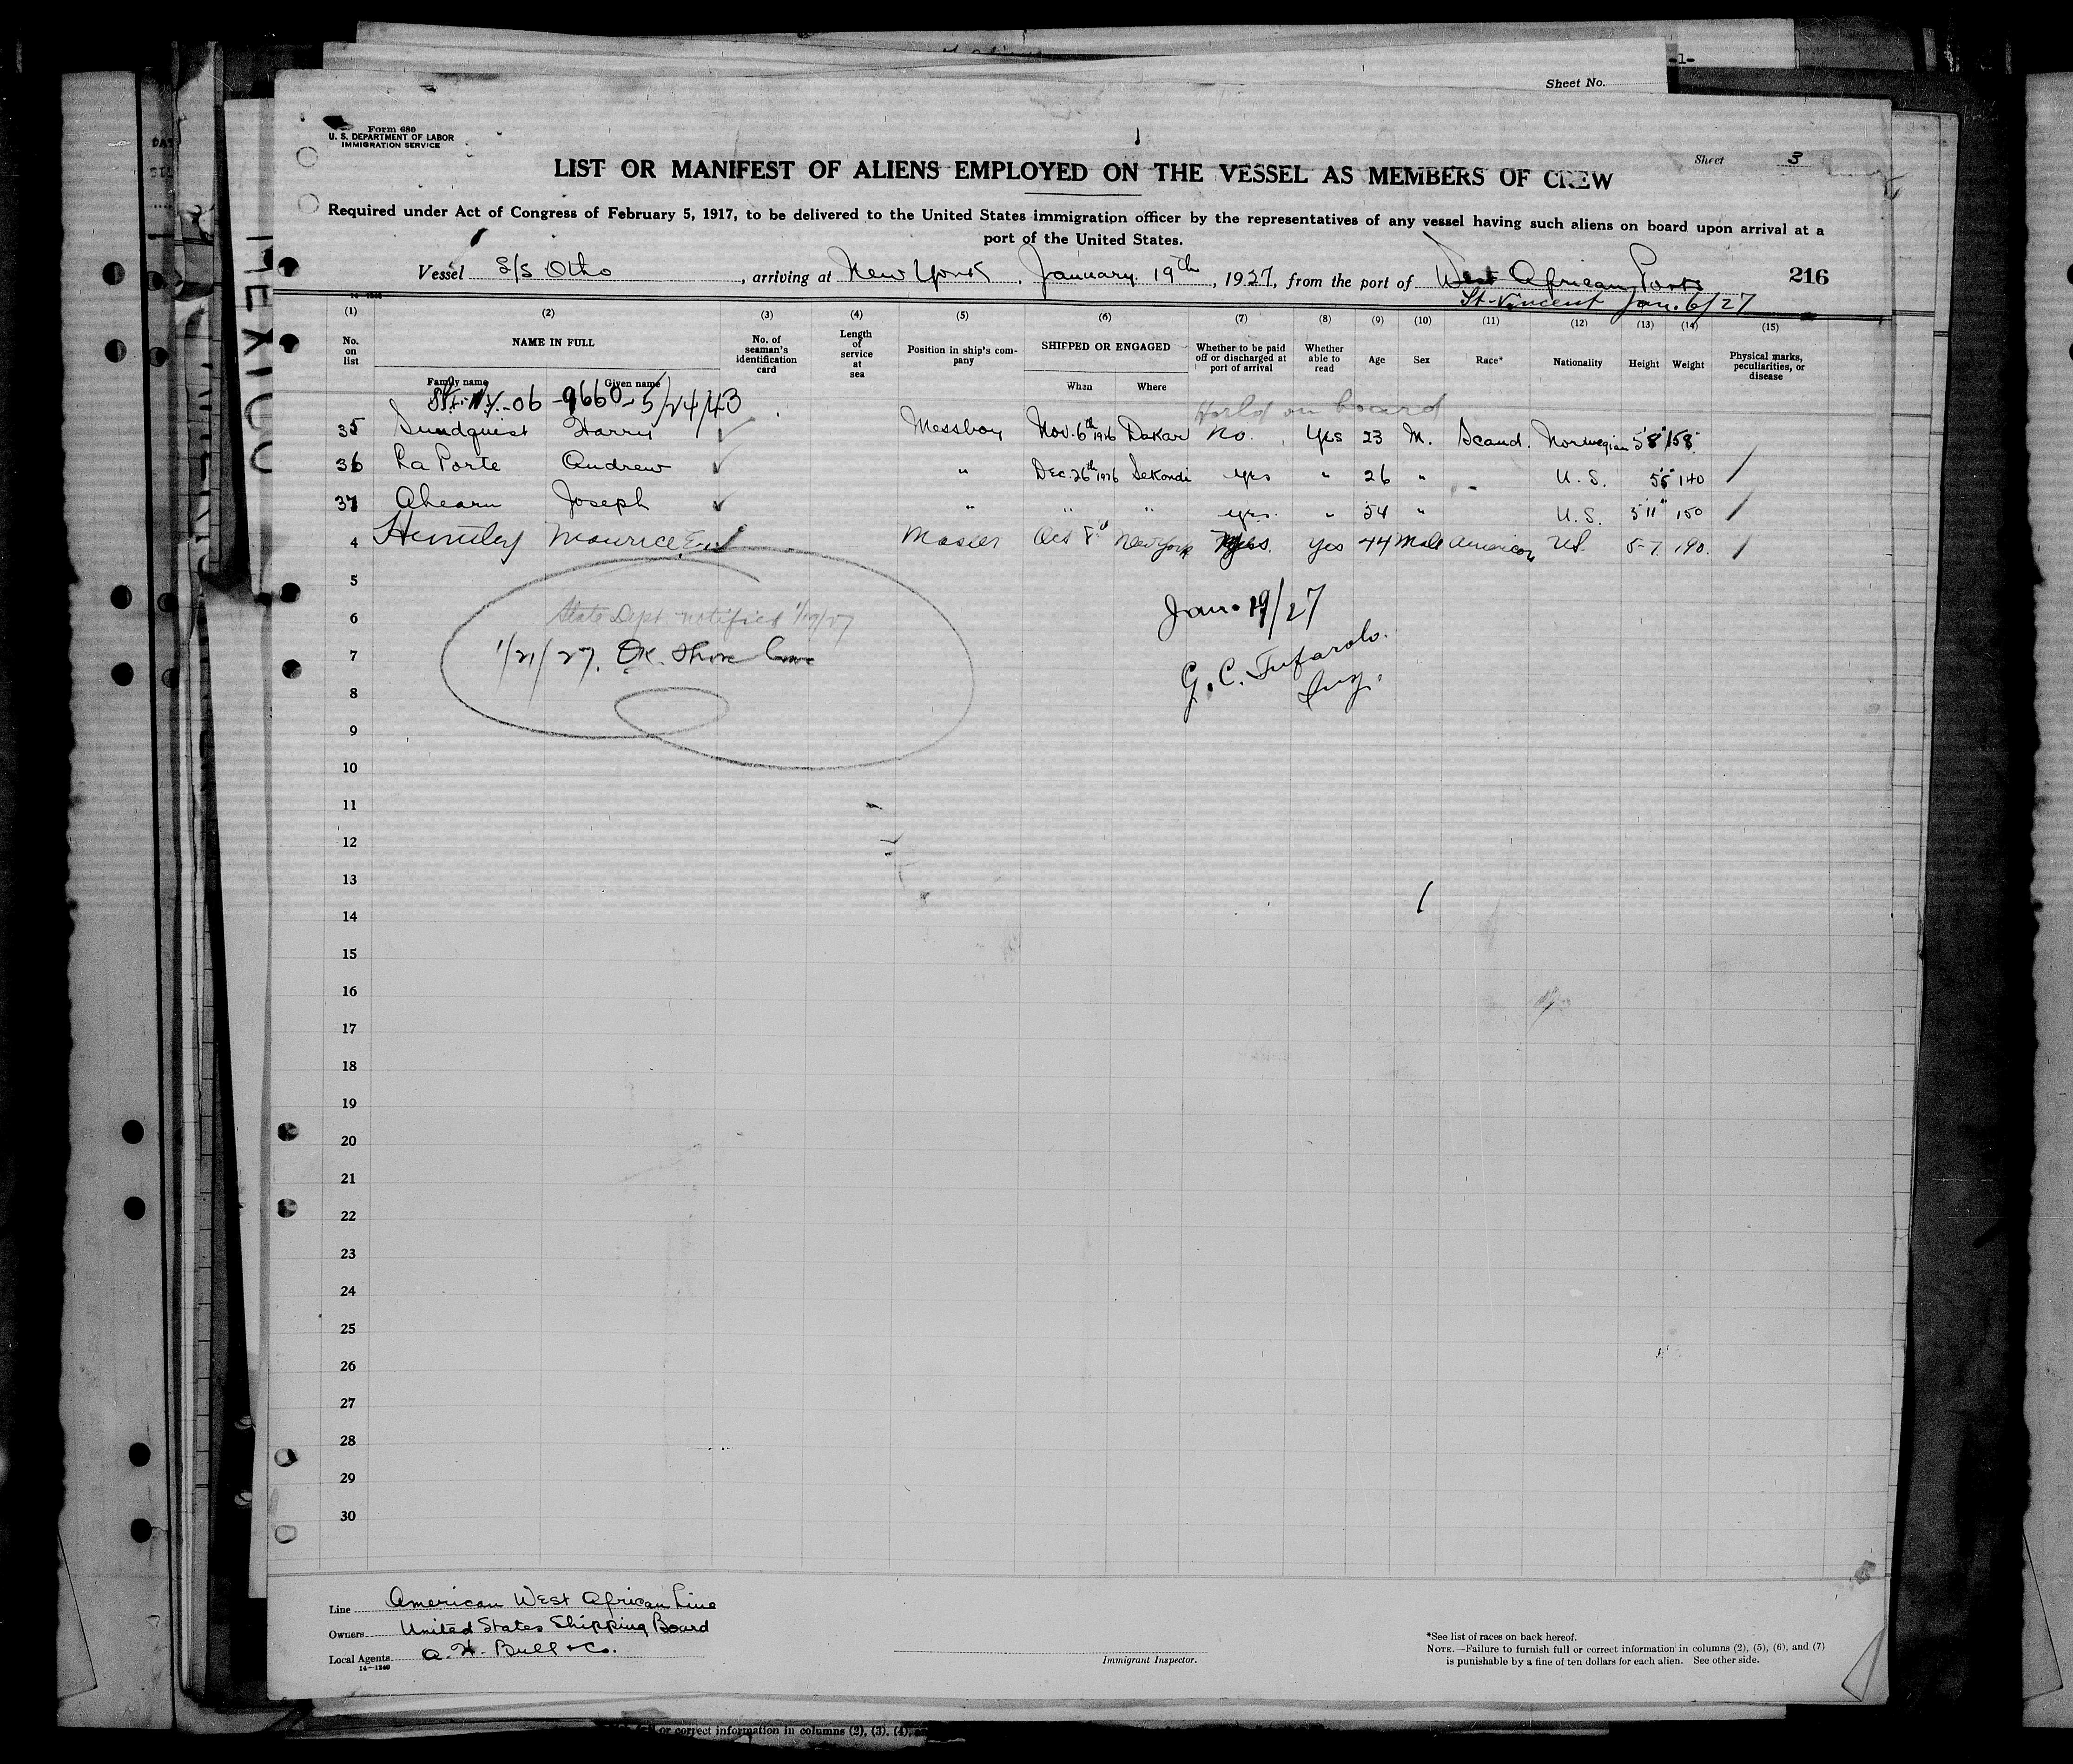 -1-
Sheet No.
Form 680
U. S. DEPARTMENT OF LABOR
IMMIGRATION SERVICE
Sheet 3
LIST OR MANIFEST OF ALIENS EMPLOYED ON THE VESSEL AS MEMBERS OF CREW
Required under Act of Congress of February 5, 1917, to be delivered to the United States immigration officer by the representatives of any vessel having such aliens on board upon arrival at a
port of the United States.
Vessel S/S Otho, arriving at New York, January 19th, 1927, from the port of West African Ports 216
St. Vincent Jan. 6/27
MEXICO
(1) (2) (3) (4) (5) (6) (7) (8) (9) (10) (11) (12) (13) (14) (15)
No. on list
NAME IN FULL
Family name Given name
No. of seaman's identification card
Length of service at sea
Position in ship's company
SHIPPED OR ENGAGED
When Where
Whether to be paid off or discharged at port of arrival
Whether able to read
Age
Sex
Race*
Nationality
Height
Weight
Physical marks, peculiarities, or disease
-06-9660-5/24/43
Held on board
35 Sundquist Harry Messboy Nov. 6th 1926 Dakar No. Yes 23 M. Scand. Norwegian 5'8" 158
36 La Porte Andrew " Dec. 26th 1926 Sekondi yes " 26 " U. S. 5'5" 140
37 Ahearn Joseph " " " yes. " 54 " U. S. 5'11" 150
4 Maurice E. Master Oct 8th New York Yes 44 Male American US. 5-7. 190.
5
6 State Dept. notified 1/19/27
Jan. 19/27
7 1/21/27. OK. Shore
G. C. Tufarolo.
Insp.
8
9
10
11
12
13
14
15
16
17
18
19
20
21
22
23
24
25
26
27
28
29
30
Line American West African Line
Owners United States Shipping Board
Local Agents A. H. Bull & Co.
14-1240
Immigrant Inspector.
*See list of races on back hereof.
NOTE.—Failure to furnish full or correct information in columns (2), (5), (6), and (7)
is punishable by a fine of ten dollars for each alien. See other side.
or correct information in columns (2), (3), (4),